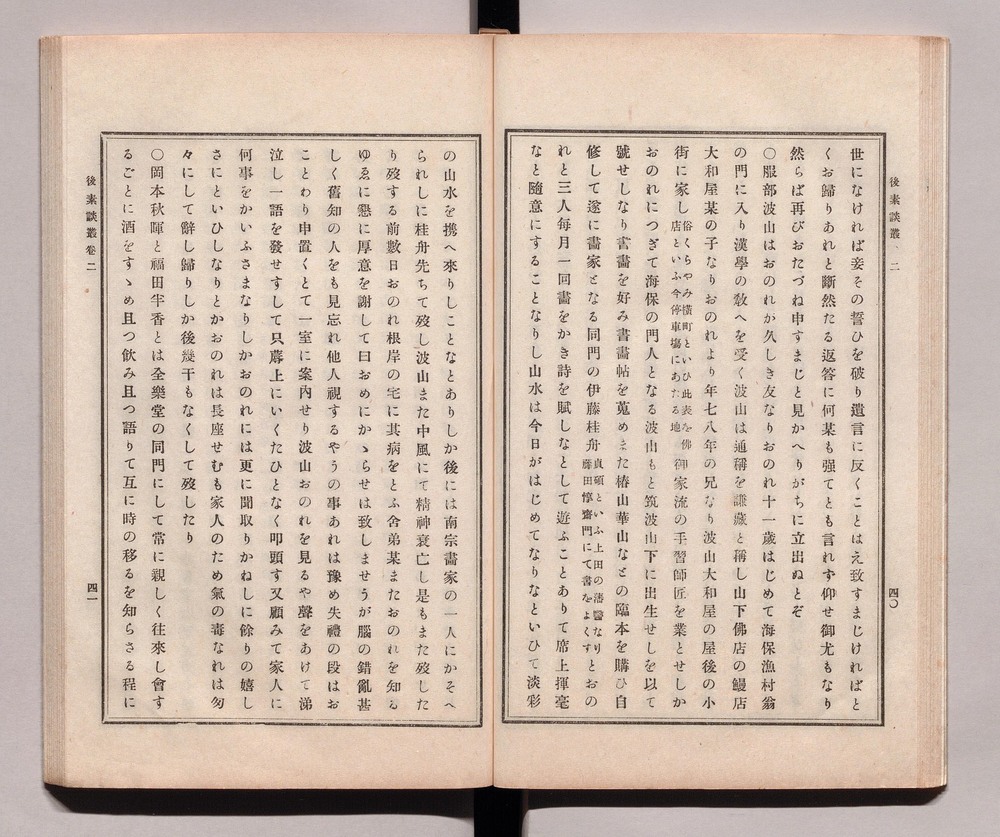 後素談叢 二
世になければ妾その誓ひを破り遺言に反くことはえ致すまじければと
くお歸りあれと斷然たる返答に何某も强てとも言れず仰せ御尤もなり
然らば再びおたづね申すまじと見かへりがちに立出ぬとぞ
〇服部波山はおのれか久しき友なりおのれ十一歲はじめて海保漁村翁
の門に入り漢學の敎へを受く波山は通稱を謙藏と稱し山下佛店の鰻店
大和屋某の子なりおのれより年七八年の兄なり波山大和屋の屋後の小
街に家し俗くらやみ橫町といひ此表を佛店といふ今停車塲にあたる地御家流の手習師匠を業とせしか
おのれにつぎて海保の門人となる波山もと筑波山下に出生せしを以て
號せしなり書畵を好み書畵帖を蒐めまた椿山華山などの臨本を購ひ自
修して遂に畵家となる同門の伊藤桂舟貞碩といふ上田の藩醫なり藤田惇齋門にて書をよくすとおの
れと三人每月一回畵をかき詩を賦しなとして遊ふことありて席上揮毫
なと隨意にすることなりし山水は今日がはじめてなりなといひて淡彩
四〇
の山水を携へ來りしことなとありしか後には南宗畵家の一人にかそへ
られしに桂舟先ちて歿し波山また中風にて精神衰亡し是もまた歿した
り歿する前數日おのれ根岸の宅に其病をとふ舍弟某またおのれを知る
ゆゑに懇に厚意を謝して曰おめにかゝらせは致しませうが腦の錯亂甚
しく舊知の人をも見忘れ他人視するやうの事あれは豫め失禮の段はお
ことわり申置くとて一室に案內せり波山おのれを見るや聲をあけて涕
泣し一語を發せすして只蓐上にいくたひとなく叩頭す又顧みて家人に
何事をかいふさまなりしかおのれには更に聞取りかねしに餘りの嬉し
さにといひしなりとかおのれは長座せむも家人のため氣の毒なれは匆
々にして辭し歸りしか後幾干もなくして歿したり
〇岡本秋暉と福田半香とは全樂堂の同門にして常に親しく往來し會す
るごとに酒をすゝめ且つ飮み且つ語りて互に時の移るを知らさる程に
後素談叢卷二
四一